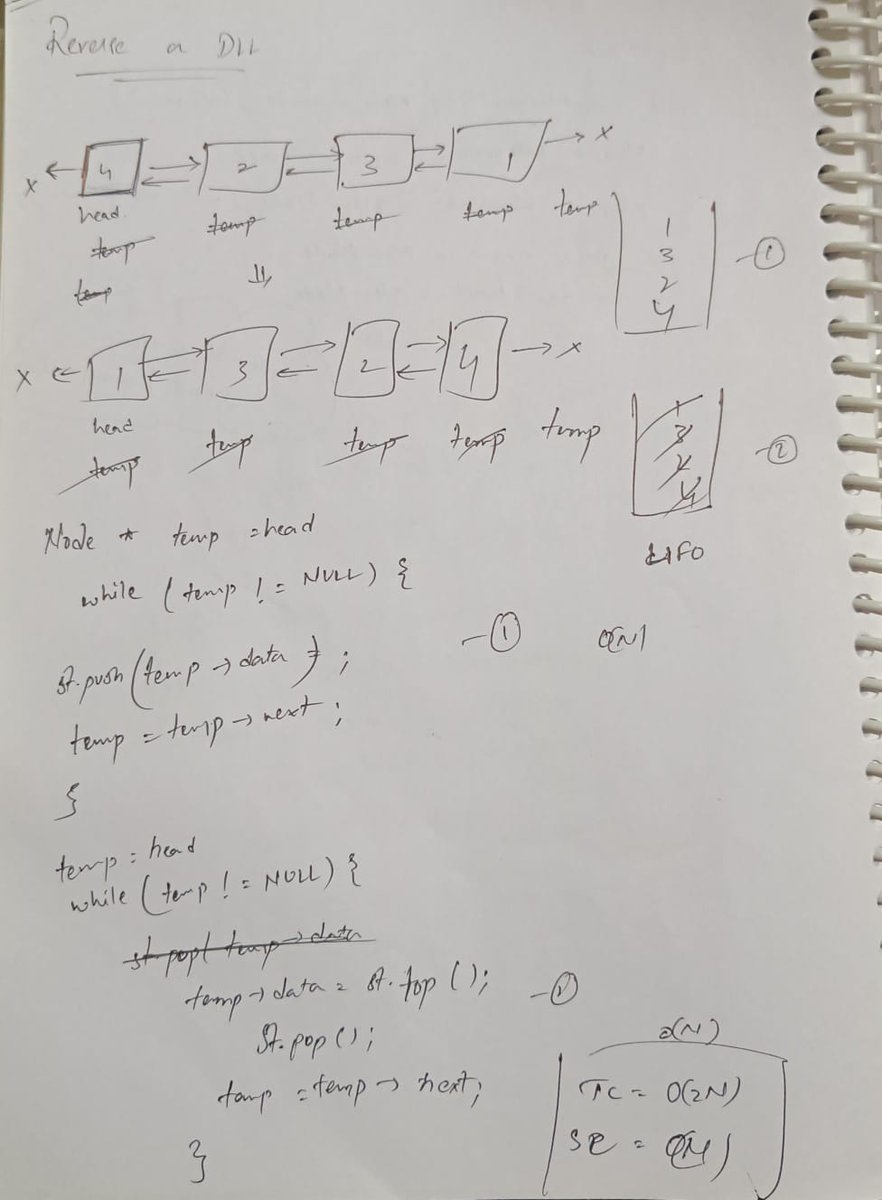 Reverse a DLL
x ← 4 2 3 1 → x
head temp temp temp temp
temp
temp
1
3
2
4
- ①
x ← 1 3 2 4 → x
head temp temp temp temp
temp
1
3
2
4
- ②
LIFO
Node * temp = head
while (temp != NULL) {
st.push(temp → data);
- ① O(N)
temp = temp → next;
}
temp = head
while (temp != NULL) {
st.pop( temp → data
temp → data = st.top();
- ②
st.pop();
temp = temp → next;
}
O(N)
TC = O(2N)
= O(N)